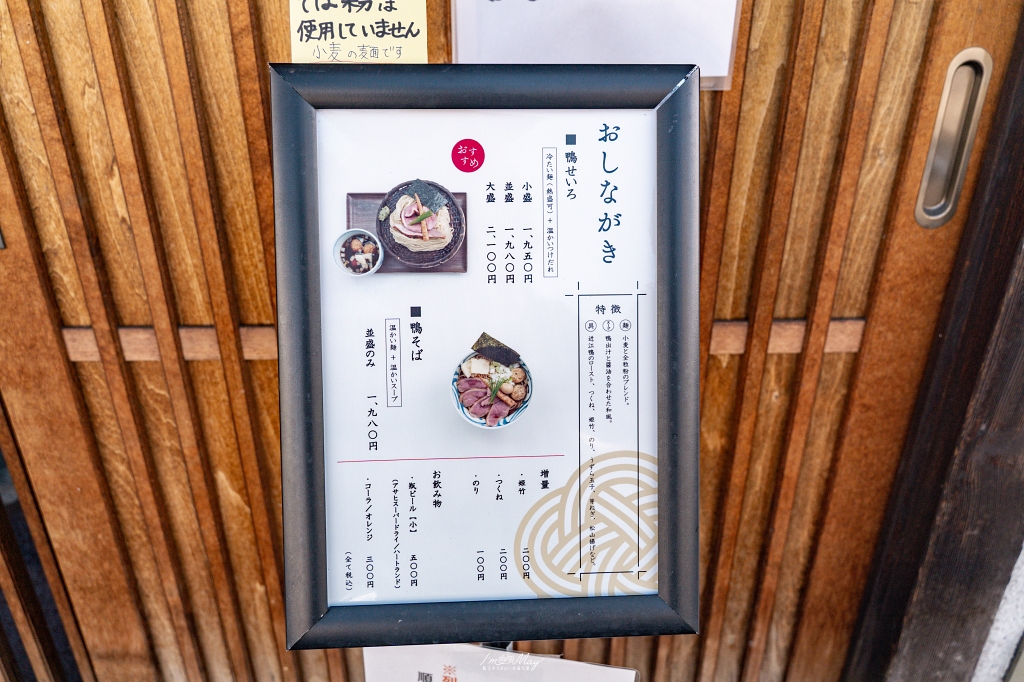 そば粉は
使用していません
小麦の麺です
おしながき
■鴨せいろ
冷たい麺(熱盛可)+温かいつけだれ
小盛 一、九五〇円
並盛 一、九八〇円
大盛 二、一〇〇円
おすすめ
特徴
麺 小麦と全粒粉のブレンド。
鴨出汁と醤油を合わせた和風。
具 近江鴨のロースト、つくね、姫竹、のり、うずら玉子、芽ねぎ、松山揚げなど。
■鴨そば
温かい麺+温かいスープ
並盛のみ 一、九八〇円
増量
・姫竹 二〇〇円
・つくね 二〇〇円
・のり 一〇〇円
お飲み物
・瓶ビール【小】 五〇〇円
(アサヒスーパードライ/ハートランド)
・コーラ/オレンジ 三〇〇円
(全て税込)
※列
順